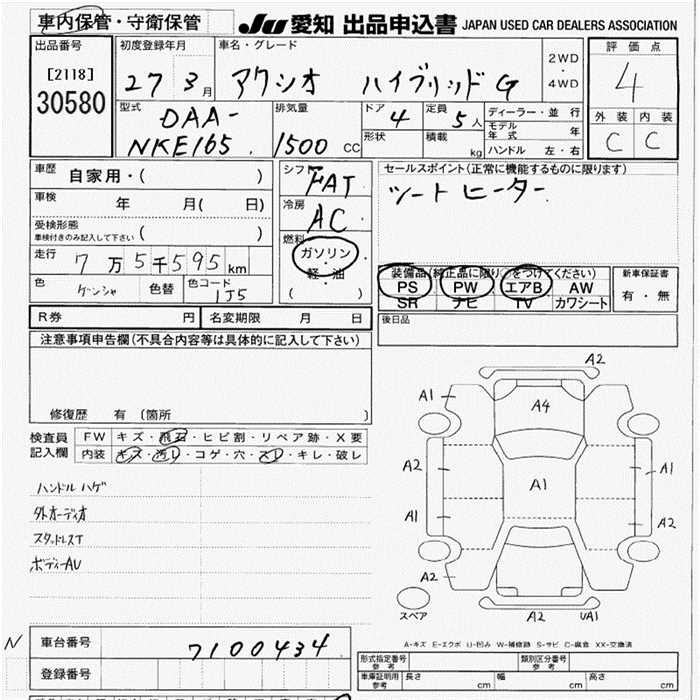 車内保管・守衛保管
JU 愛知 出品申込書 JAPAN USED CAR DEALERS ASSOCIATION
出品番号
[2118]
30580
初度登録年月
27 3月
車名・グレード
アクシオ ハイブリッドG
2WD
・
4WD
評価点
4
外装 内装
C C
型式
DAA-
NKE165
排気量
1500 cc
ドア 4
形状
定員 5人
積載 kg
ディーラー・並行
モデル年式 年
ハンドル 左・右
車歴
自家用・( )
車検
年 月( 日)
受検形態
車検付きのみ記入して下さい ( )
走行 7万5千595km
色 ゲンシャ 色替 色コード 1J5
シフト FAT
冷房 AC
燃料
ガソリン
・
軽・油
( )
セールスポイント(正常に機能するものに限ります)
シートヒーター
装備品(純正品に限り○をつけてください)
PS PW エアB AW
SR ナビ TV カワシート
新車保証書
有・無
R券 円 名変期限 月 日
後日品
注意事項申告欄(不具合内容等は具体的に記入して下さい)
修復歴 有 (箇所 )
検査員
記入欄
FW キズ・飛石・ヒビ割・リペア跡・X要
内装 キズ・汚レ・コゲ・穴・スレ・キレ・破レ
ハンドルハゲ
外オーディオ
スタッドレスT
ボディーAU
A2
A1
A4
A2
A1
A1
A1
A2
A2
A2 UA1
スペア
A-キズ E-エクボ U-凹み W-補修跡 S-サビ C-腐食 XX-交換済
N
車台番号 7100434
登録番号
形式指定番号
参考
類別区分番号
参考
車庫証明用
参考
長さ cm 幅 cm 高さ cm